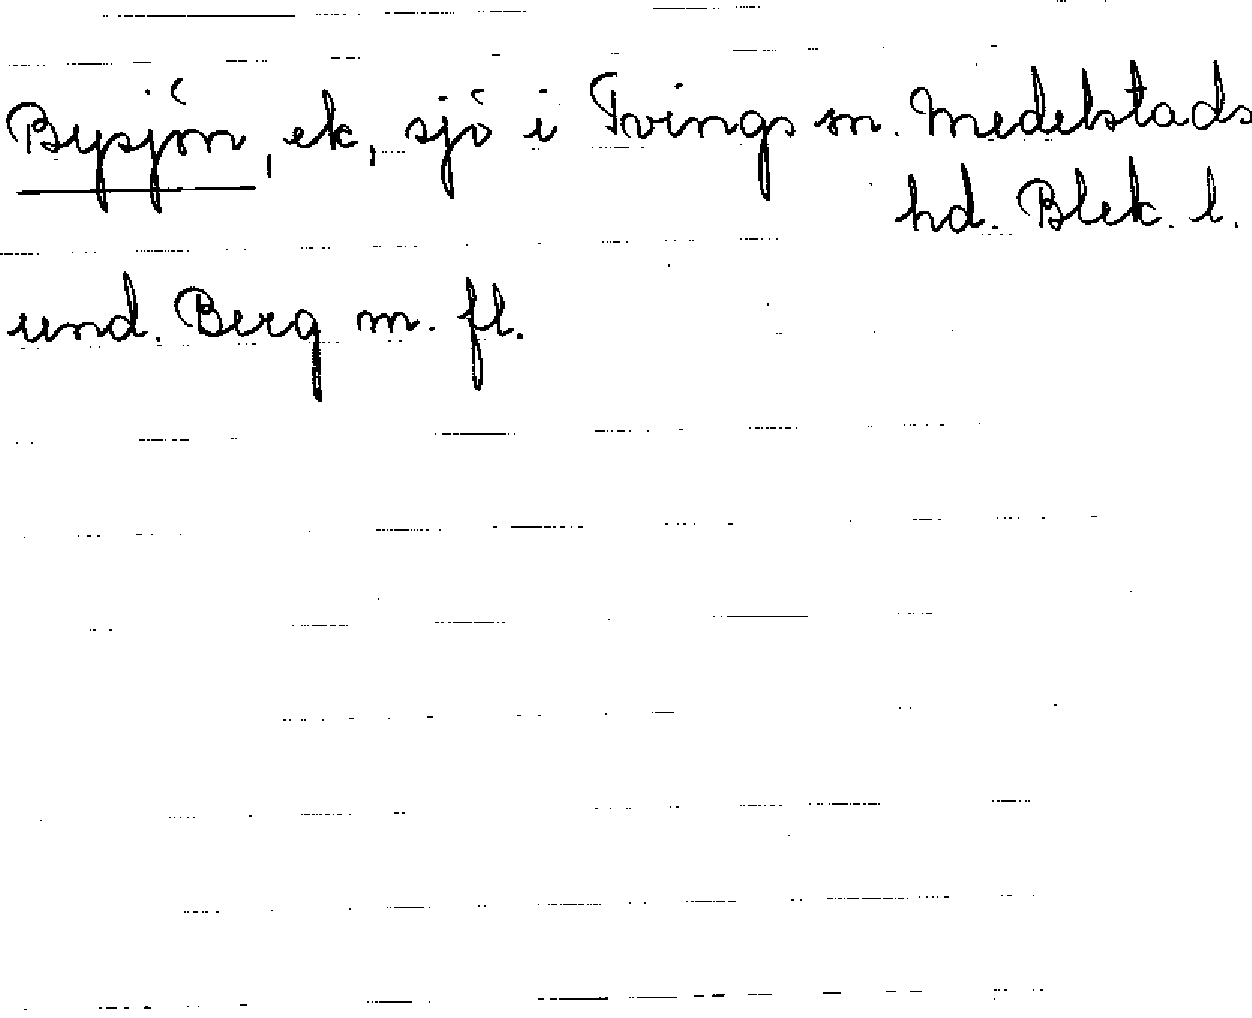 Bysjön, ek, sjö i Tvings sn. Medelstads
hd. Blek. l.
und. Berg m. fl.